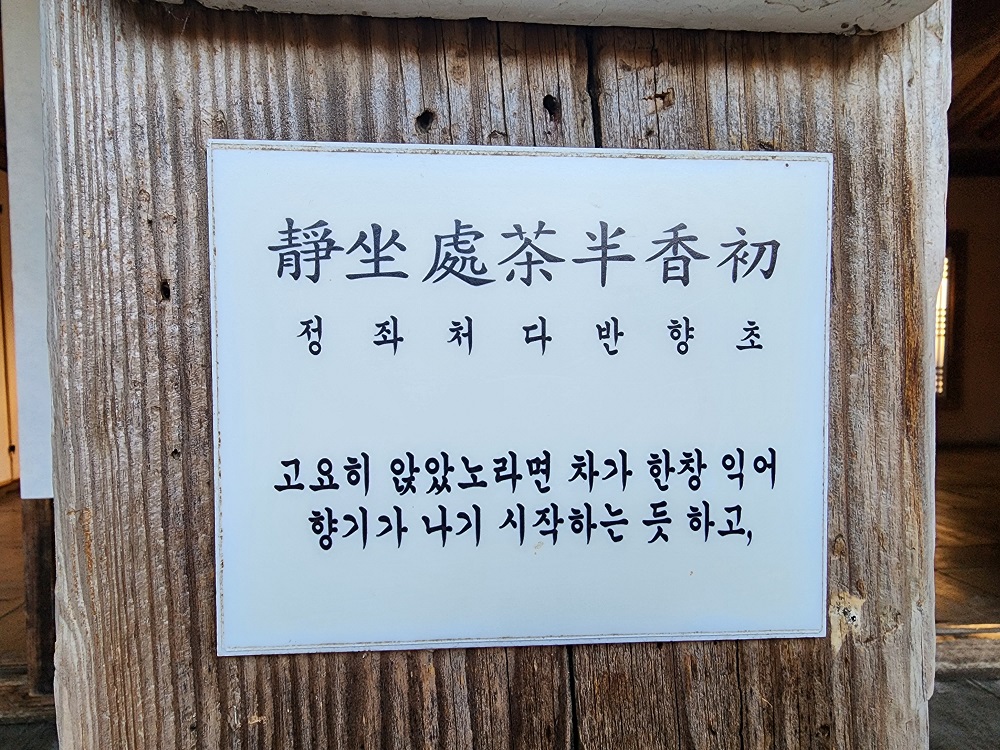 靜坐處茶半香初
정좌처다반향초
고요히 앉았노라면 차가 한창 익어
향기가 나기 시작하는 듯 하고,